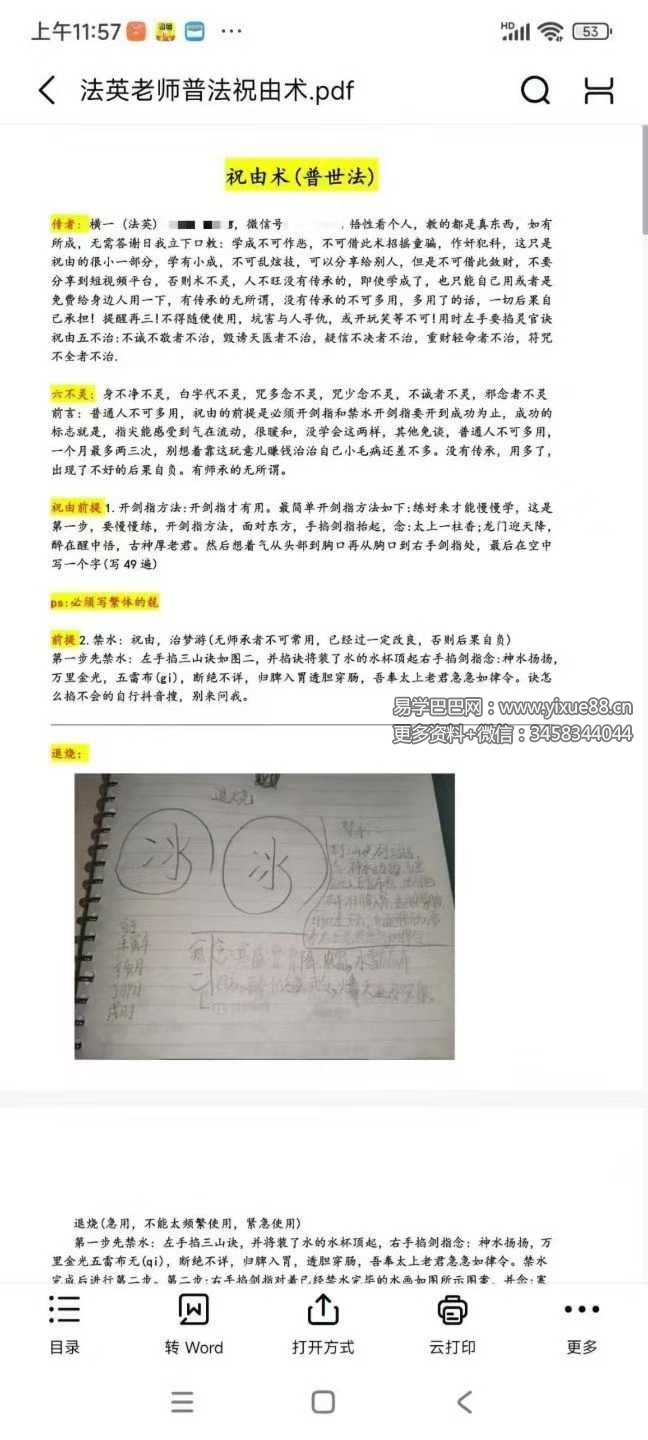 上午11:57
HD
53
法英老师普法祝由术.pdf
祝由术(普世法)
传者：横一（法英），微信号，悟性看个人，教的都是真东西，如有
所成，无需答谢日我立下口教：学成不可作恶，不可借此术招摇童骗，作奸犯科，这只是
祝由的很小一部分，学有小成，不可乱炫技，可以分享给别人，但是不可借此敛财，不要
分享到短视频平台，否则术不灵，人不旺没有传承的，即使学成了，也只能自己用或者是
免费给身边人用一下，有传承的无所谓，没有传承的不可多用，多用了的话，一切后果自
己承担！提醒再三!不得随便使用，坑害与人寻仇，或开玩笑等不可!用时左手要掐灵官诀
祝由五不治:不诚不敬者不治，毁谤天医者不治，疑信不决者不治，重财轻命者不治，符咒
不全者不治.
六不灵：身不净不灵，白字代不灵，咒多念不灵，咒少念不灵，不诚者不灵，邪念者不灵
前言：普通人不可多用，祝由的前提是必须开剑指和禁水开剑指要开到成功为止，成功的
标志就是，指尖能感受到气在流动，很暖和，没学会这两样，其他免谈，普通人不可多用，
一个月最多两三次，别想着靠这玩意儿赚钱治治自己小毛病还差不多。没有传承，用多了，
出现了不好的后果自负。有师承的无所谓。
祝由前提1.开剑指方法:开剑指才有用。最简单开剑指方法如下:练好来才能慢慢学，这是
第一步，要慢慢练，开剑指方法，面对东方，手掐剑指抬起，念:太上一柱香;龙门迎天降，
醉在醒中悟，古神厚老君。然后想着气从头部到胸口再从胸口到右手剑指处，最后在空中
写一个字(写49遍)
ps:必须写繁体的龍
前提2.禁水：祝由，治梦游(无师承者不可常用，已经过一定改良，否则后果自负)
第一步先禁水：左手掐三山诀如图二，并掐诀将装了水的水杯顶起右手掐剑指念：神水扬扬，
万里金光，五雷布(gi)，断绝不详，归脾入胃透胆穿肠，吾奉太上老君急急如律令。诀怎
么掐不会的自行抖音搜，别来问我。
易学巴巴网：www.yixue88.cn
更多资料+微信：3458344044
退烧：
退烧
冰 冰
退烧(急用，不能太频繁使用，紧急使用)
第一步先禁水：左手掐三山诀，并将装了水的水杯顶起，右手掐剑指念：神水扬扬，万
里金光五雷布无(qi)，断绝不详，归脾入胃，透胆穿肠，吾奉太上老君急急如律令。禁水
完成后进行第二步。第二步:右手掐剑指对着已经禁水完毕的水画如图所示图案，并念:寒
目录
转 Word
打开方式
云打印
更多